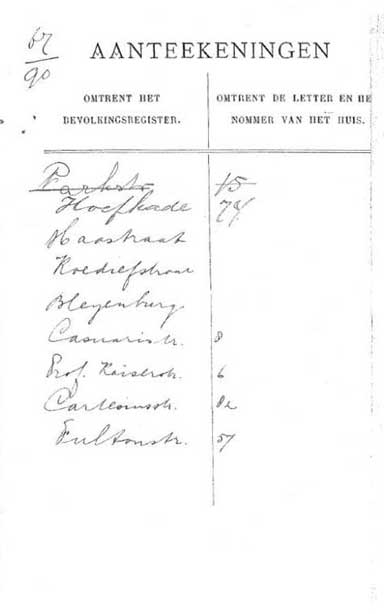 67
90
AANTEEKENINGEN
OMTRENT HET
BEVOLKINGSREGISTER.
OMTRENT DE LETTER EN HE
NOMMER VAN HET HUIS.
Parkstr 15
Hoefkade
Maastraat
Roediefstraat
Bleyenburg
Casuaristr. 8
Prof. Kaiserstr. 6
Cartesiusstr. 82
Fultonstr. 57